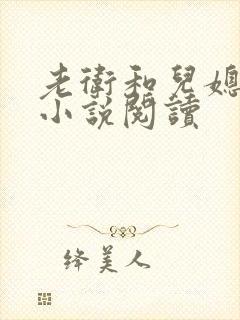 老衛和兒媳
小說閱讀
绛美人